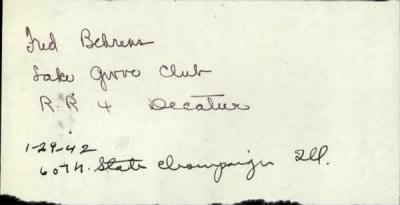 Fred Behrens
Lake Grove Club
R.R 4 Decatur
1-29-42
60 TH. State Champaign Ill.